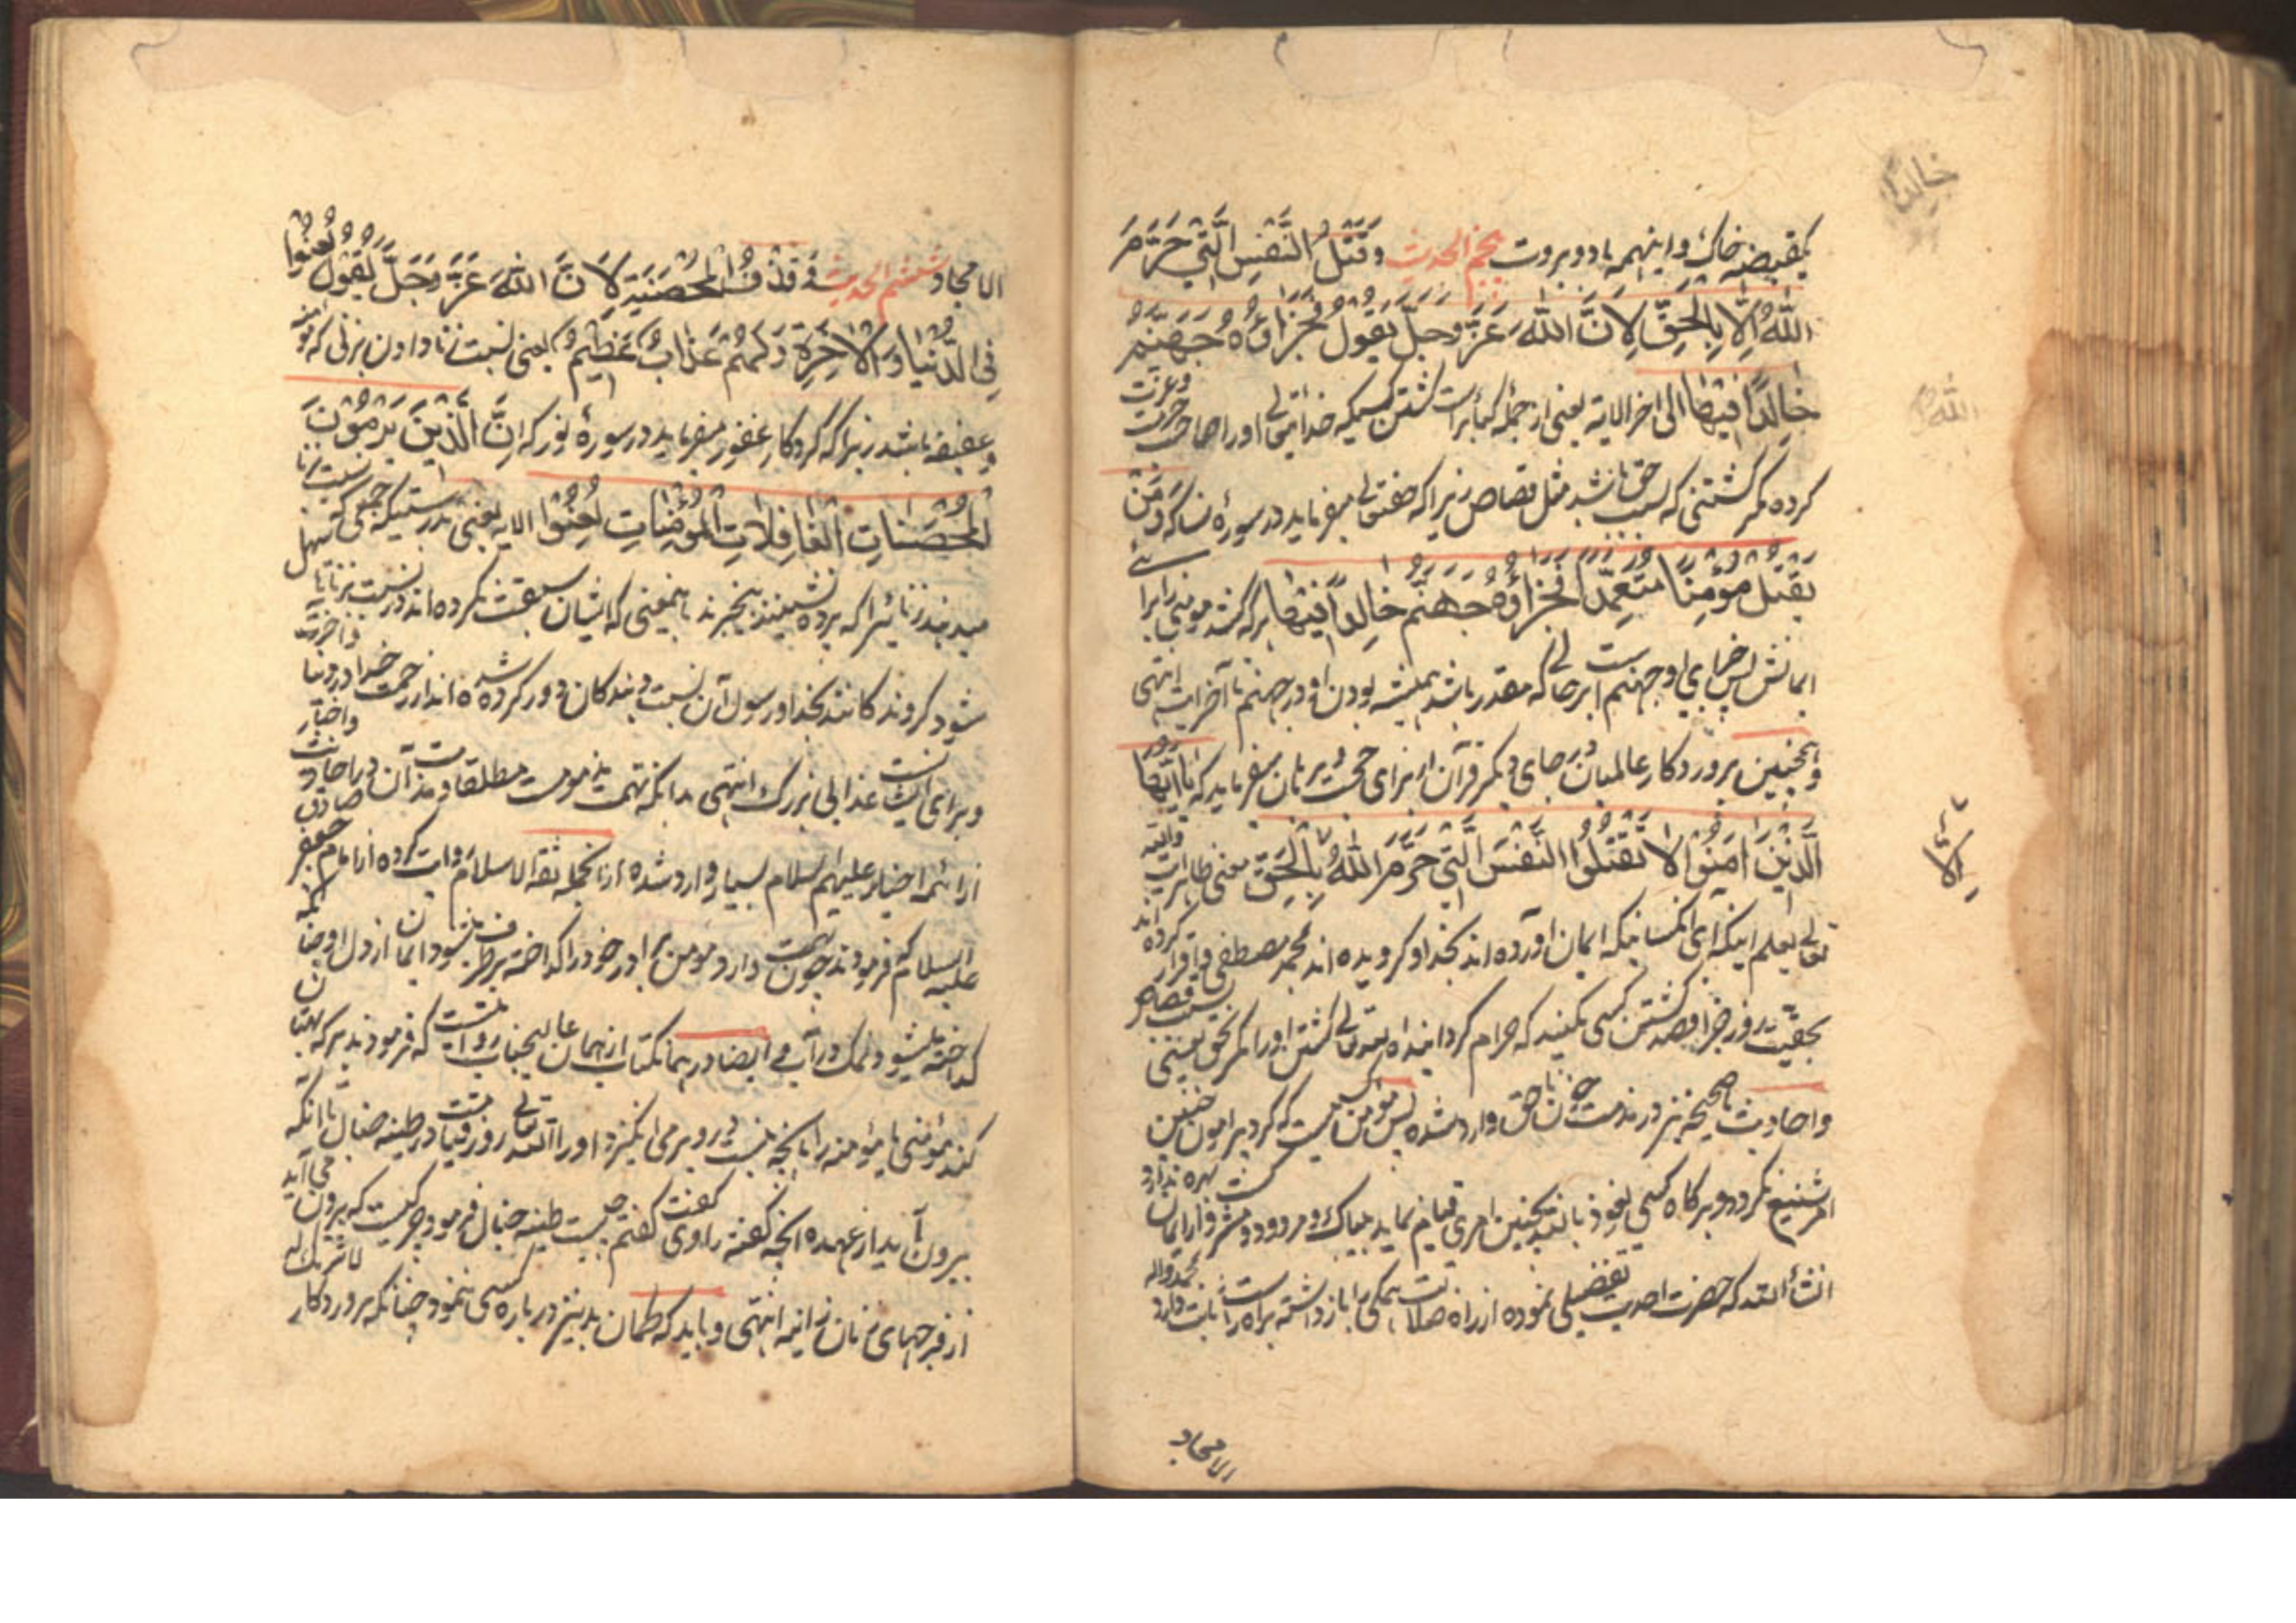 یکقبضه خاک و اینهمه باد و بروت پنجم الحدیث وَقَتْلُ النَّفْسِ الَّتِي حَرَّمَ
اللهُ اِلَّا بِالْحَقِّ لِاَنَّ اللهَ عَزَّ وَجَلَّ يَقُولُ فَجَزَاؤُهُ جَهَنَّمُ
خَالِدًا فِيهَا الی اخر الایة یعنی از جمله کبائر است کشتن کسیکه خدایتعالی اورا صاحب حرمت وعزت
کرده مگر کشتنی که بسبب حق باشد مثل قصاص زیرا که حقتعالی میفرماید در سورۀ نسا که وَمَنْ
يَقْتُلْ مُؤْمِنًا مُتَعَمِّدًا فَجَزَاؤُهُ جَهَنَّمُ خَالِدًا فِيهَا هر که کشد مومنی را برای
ایمانش پس جزای او جهنم است در حالتی که مقدر باشد همیشه بودن او در جهنم تا آخر ایت انتهی
وهمچنین پروردگار عالمیان در جای دیگر قرآن از برای حجت بریشان میفرماید که يَا اَيُّهَا
الَّذِينَ اٰمَنُوا لَا تَقْتُلُوا النَّفْسَ الَّتِي حَرَّمَ اللهُ اِلَّا بِالْحَقِّ معنی ظاهر ایت والله
تعالی یعلم اینکه ای کسانیکه ایمان اورده اند بخدا و گرویده اند بمحمد مصطفی و اقرار کرده اند
بحقیت روز جزا قصد کشتن کسی مکنید که حرام گردانیده الله تعالی کشتن اورا مگر بحق یعنی بسبب قصاص
و احادیث صحیحه نیز در مذمت خون ناحق وارد شده پس مومن کسیست که گرد پیرامون چنین
امر شنیع نگردد و هرگاه کسی نعوذ بالله بچنین امری قیام نماید بیباک و مردود و از ایمان بهره ندارد
انشاءالله که حضرت احدیت تفضلی نموده از راه ضلالت همگی را باز داشته براه راست ثابت دارد بمحمد واله
الامجاد
خالدا
الله
الا
الامجاد و ششم الحدیث وَقَذْفُ الْمُحْصَنَةِ لِاَنَّ اللهَ عَزَّ وَجَلَّ يَقُولُ لُعِنُوا
فِي الدُّنْيَا وَالْاٰخِرَةِ وَلَهُمْ عَذَابٌ عَظِيمٌ یعنی نسبت زنا دادن بزنی که مومنه
و عفیفه باشد زیرا که کردگار غفور میفرماید در سورۀ نور که اِنَّ الَّذِينَ يَرْمُونَ
الْمُحْصَنَاتِ الْغَافِلَاتِ الْمُؤْمِنَاتِ لُعِنُوا الایه یعنی بدرستیکه جمعی که نسبت زنا
میدهند زنانیرا که پرده نشینند بیخبرند باینمعنی که ایشان سبقت نکرده اند در نسبت بزنا یا
شوهر کردند بخدا و رسول آن نسبت دهندگان دور کرده شده اند از رحمت خدا در دنیا واخرت
و برای ایشانست عذابی بزرک انتهی بدانکه تهمت مذمومست مطلقا و مذمت آن در احادیث واخبار
از ائمه اخیار علیهم السلام بسیار وارد شده از انجمله ثقة الاسلام روایت کرده از امام جعفر صادق
علیه السلام که فرمودند چون تهمت دارد مومن برادر خود را گداخته برطرف میشود ایمان از دل او چنانچه
گداخته میشود نمک در آب ایضا در همان کتاب از همان عالیجناب روایتست که فرمودند هر که بهتان
کند مؤمنی یا مؤمنه را بانچه نیست در وی بر می انگیزد اورا الله تعالی روز قیامت در طینه خبال تا انکه
بیرون آید از عهده انچه گفته راوی گفت گفتم چیست طینه خبال فرمود چرکیست که بیرون می آید
از فرجهای زنان زانیه انتهی و باید که گمان بد نیز درباره کسی ننمود چنانکه پروردگار لاشریک له